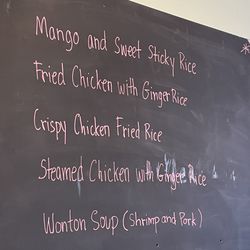 Mango and Sweet Sticky Rice
Fried Chicken with Ginger Rice
Crispy Chicken Fried Rice
Steamed Chicken with Ginger Rice
Wonton Soup (Shrimp and Pork)